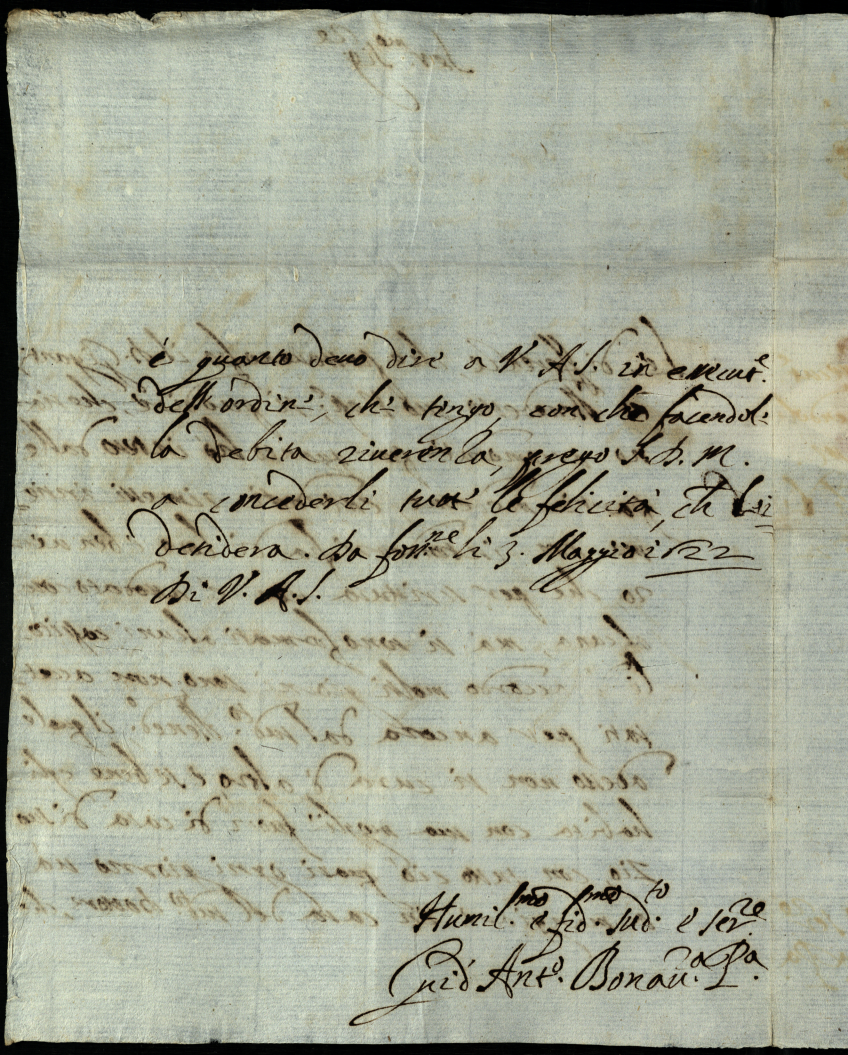 è quanto deuo dire a V. A. S. in execut.e
dell'ordine, che tengo, con che facendol-
la debita riuerenza, prego S. D. M.
a concederli tutte le felicità, ch. lei
desidera. Da li 3. Maggio 1622
Di V. A. S.
Humil.mo e fid.mo sud.to e ser.re
Guid' Ant.o Bonau.a